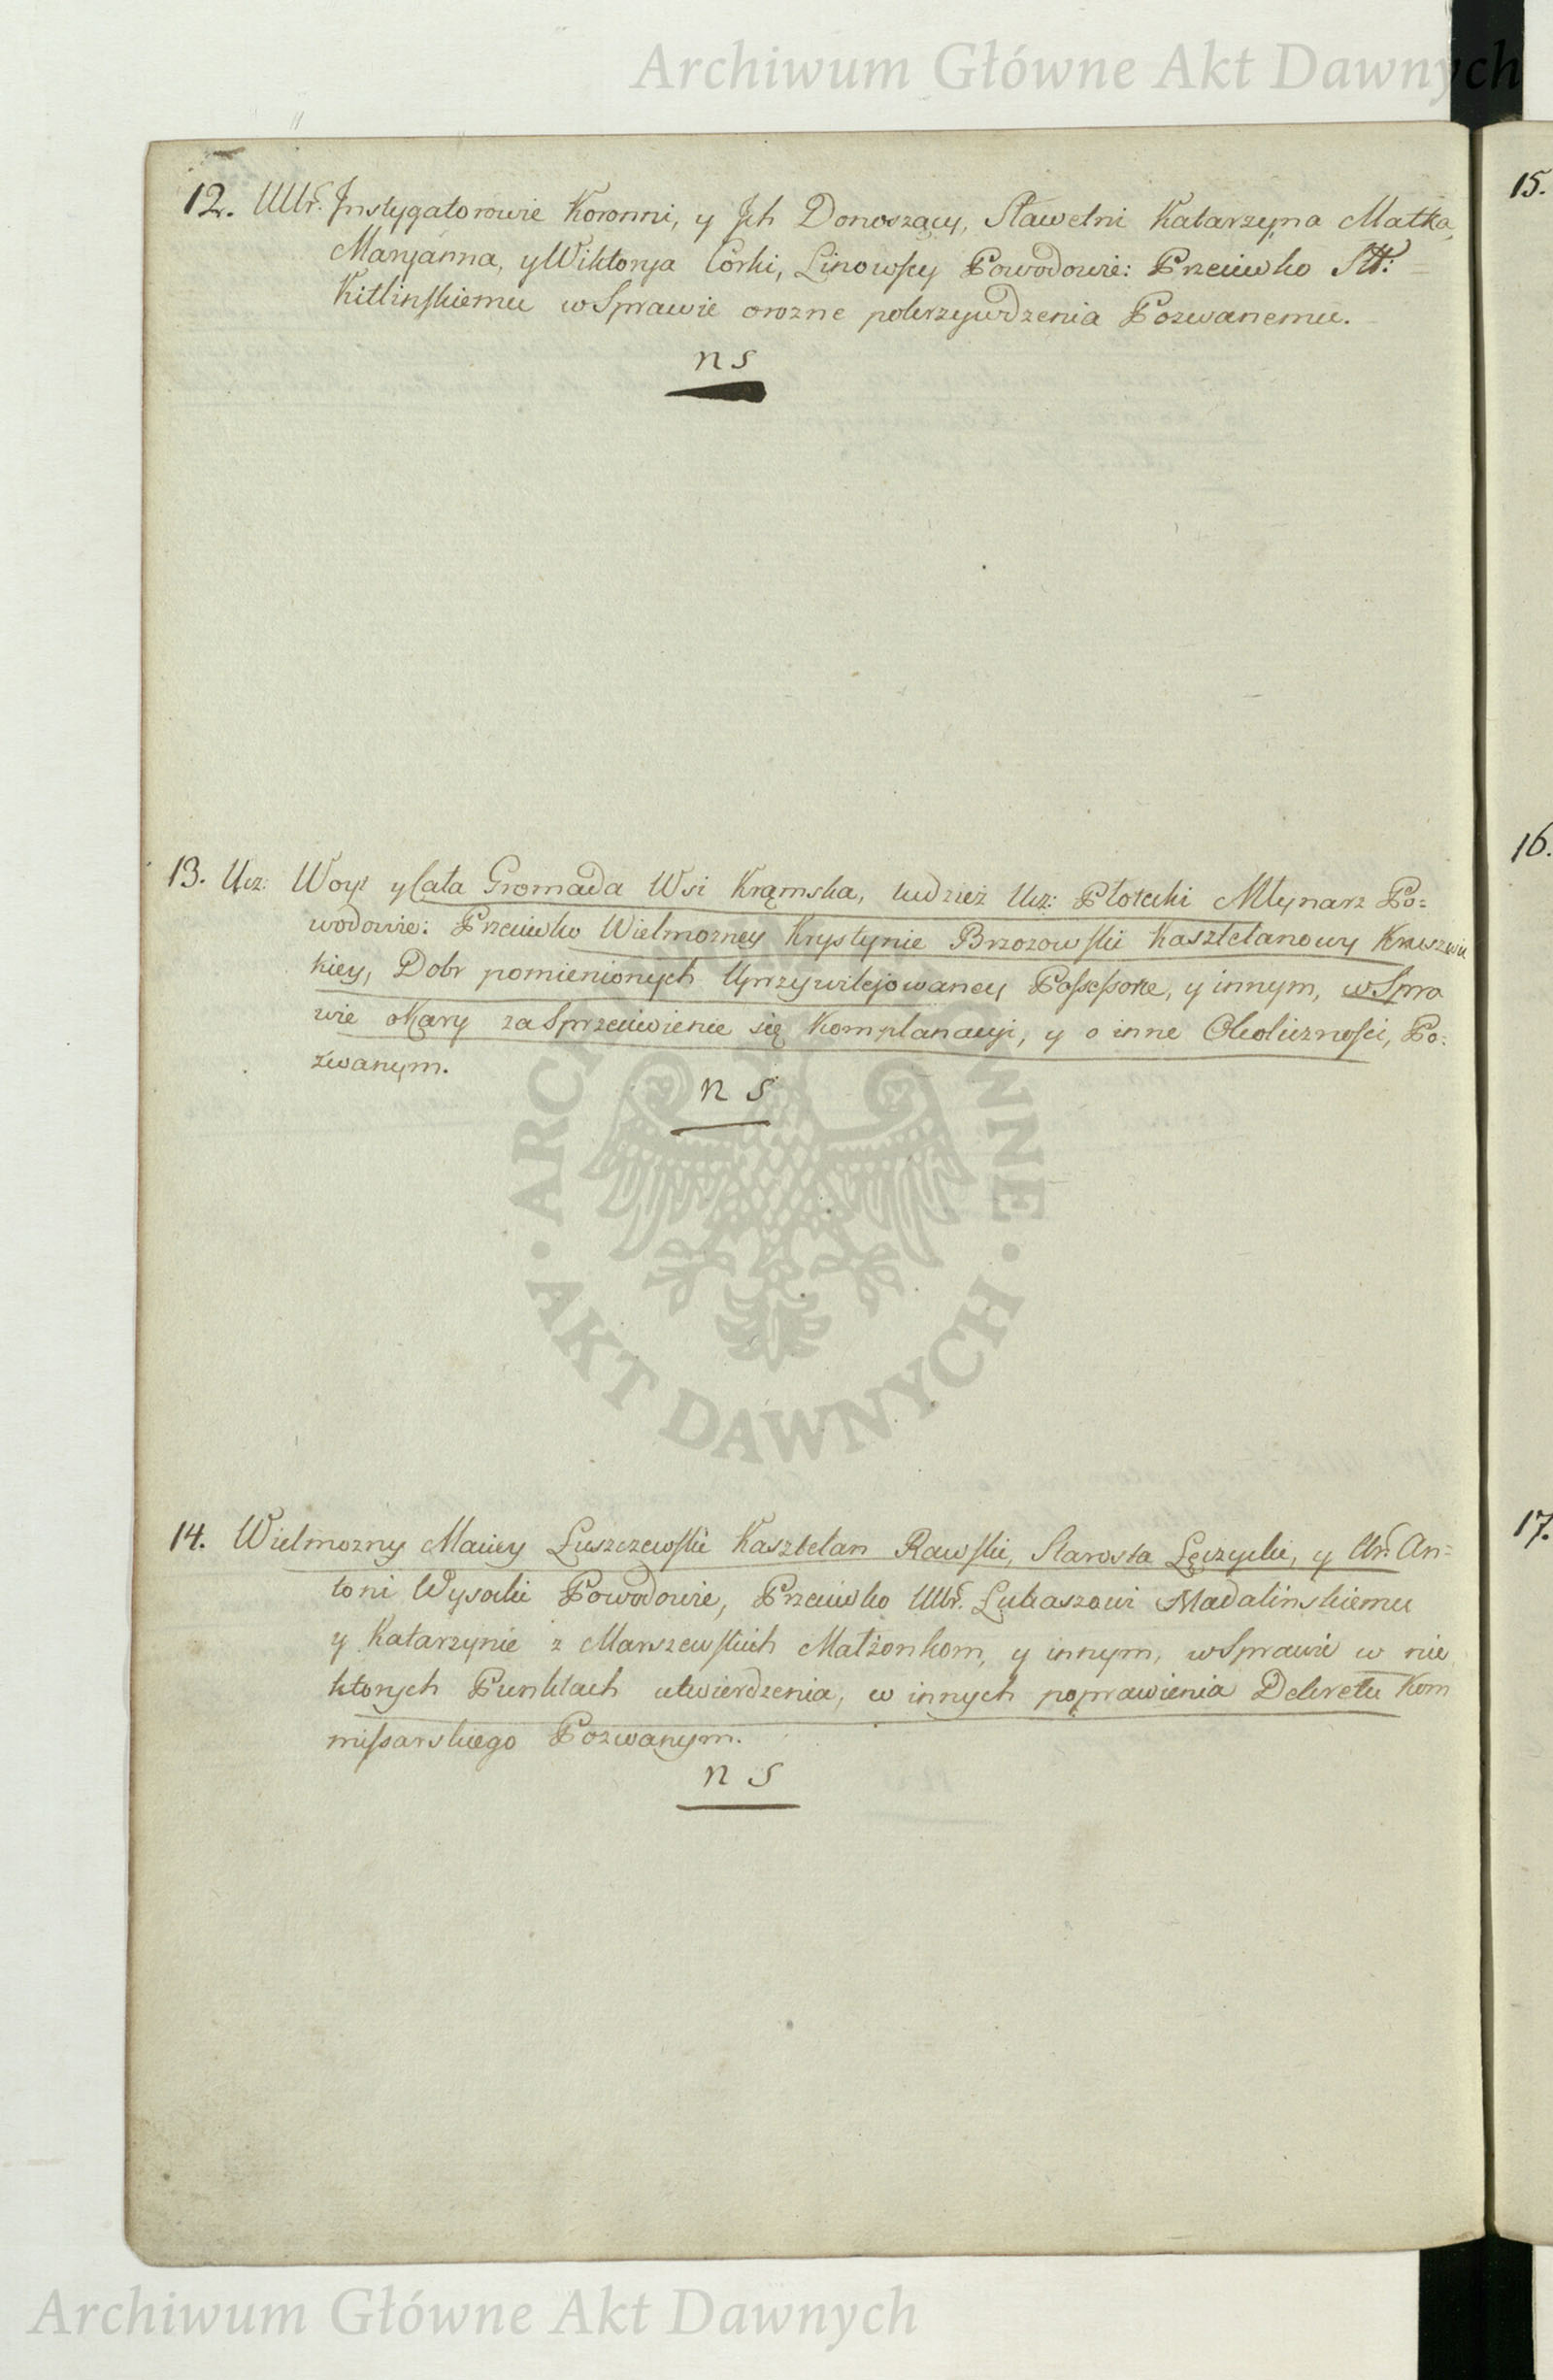 Archiwum Główne Akt Dawnych
12. UUr. Instygatorowie Koronni, y Jch Donoszący, Sławetni Katarzyna Matka,
Maryanna, y Wiktorya Corki, Linowscy Powodowie: Przeciwko Sł:
Kitlinskiemu w Sprawie orozne pokrzywdzenia Pozwanemu.
ns
13. Ucz: Woyt y Cała Gromada Wsi Krąmska, tudzież Ucz: Płotecki Młynarz Po:
wodowie: Przeciwko Wielmozney Krystynie Brzozowskie Kasztelanowy Kruszwic
kiey, Dobr pomienionych Uprzywilejowaney Possessorce, y innym, w Spra
wie oKary za Sprzeciwienie się Komplanacyi, y o inne Okolicznosci, Po:
zwanym.
n s
14. Wielmozny Maciey Łuszczewskie Kasztelan Rawskie, Starosta Łęczyckie, y Ur. An=
toni Wysockie Powodowie, Przeciwko UUr. Łukaszowi Madalinskiemu
y Katarzynie z Marszewskich Małżonkom, y innym, w Sprawie w nie
ktorych Punktach utwierdzenia, w innych poprawienia Dekretu Kom
missarskiego Pozwanym.
n s
15.
16.
17.
ARCHIWUM GŁÓWNE · AKT DAWNYCH ·
Archiwum Główne Akt Dawnych